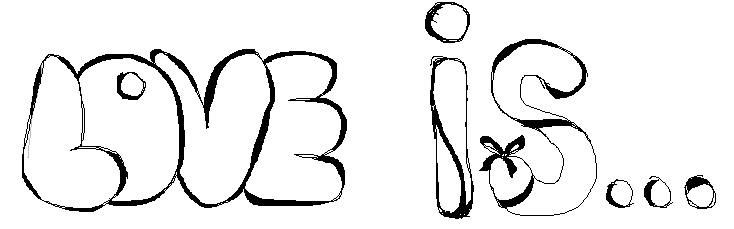 LOVE is...